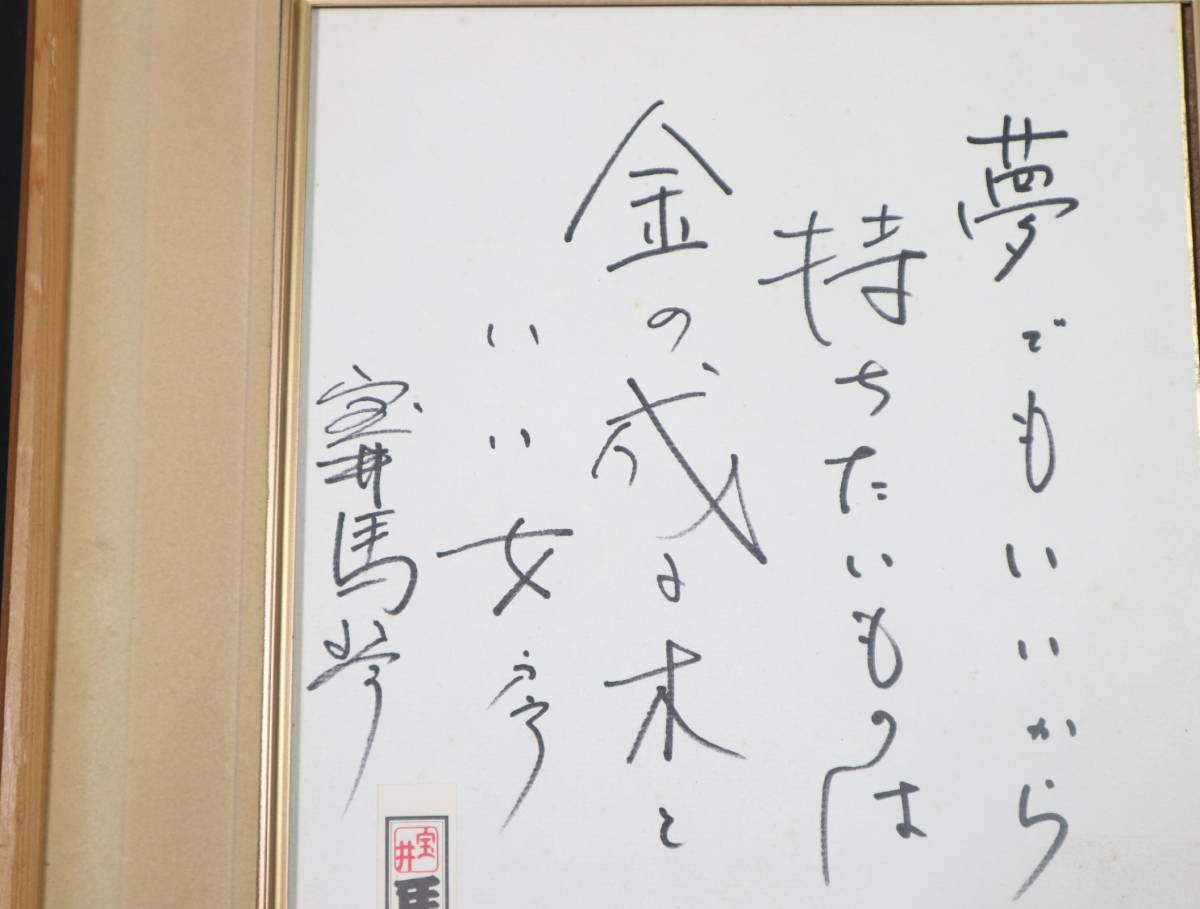 夢でもいいから
持ちたいものは
金の成る木と
いい女房
宝井馬琴
宝井
馬